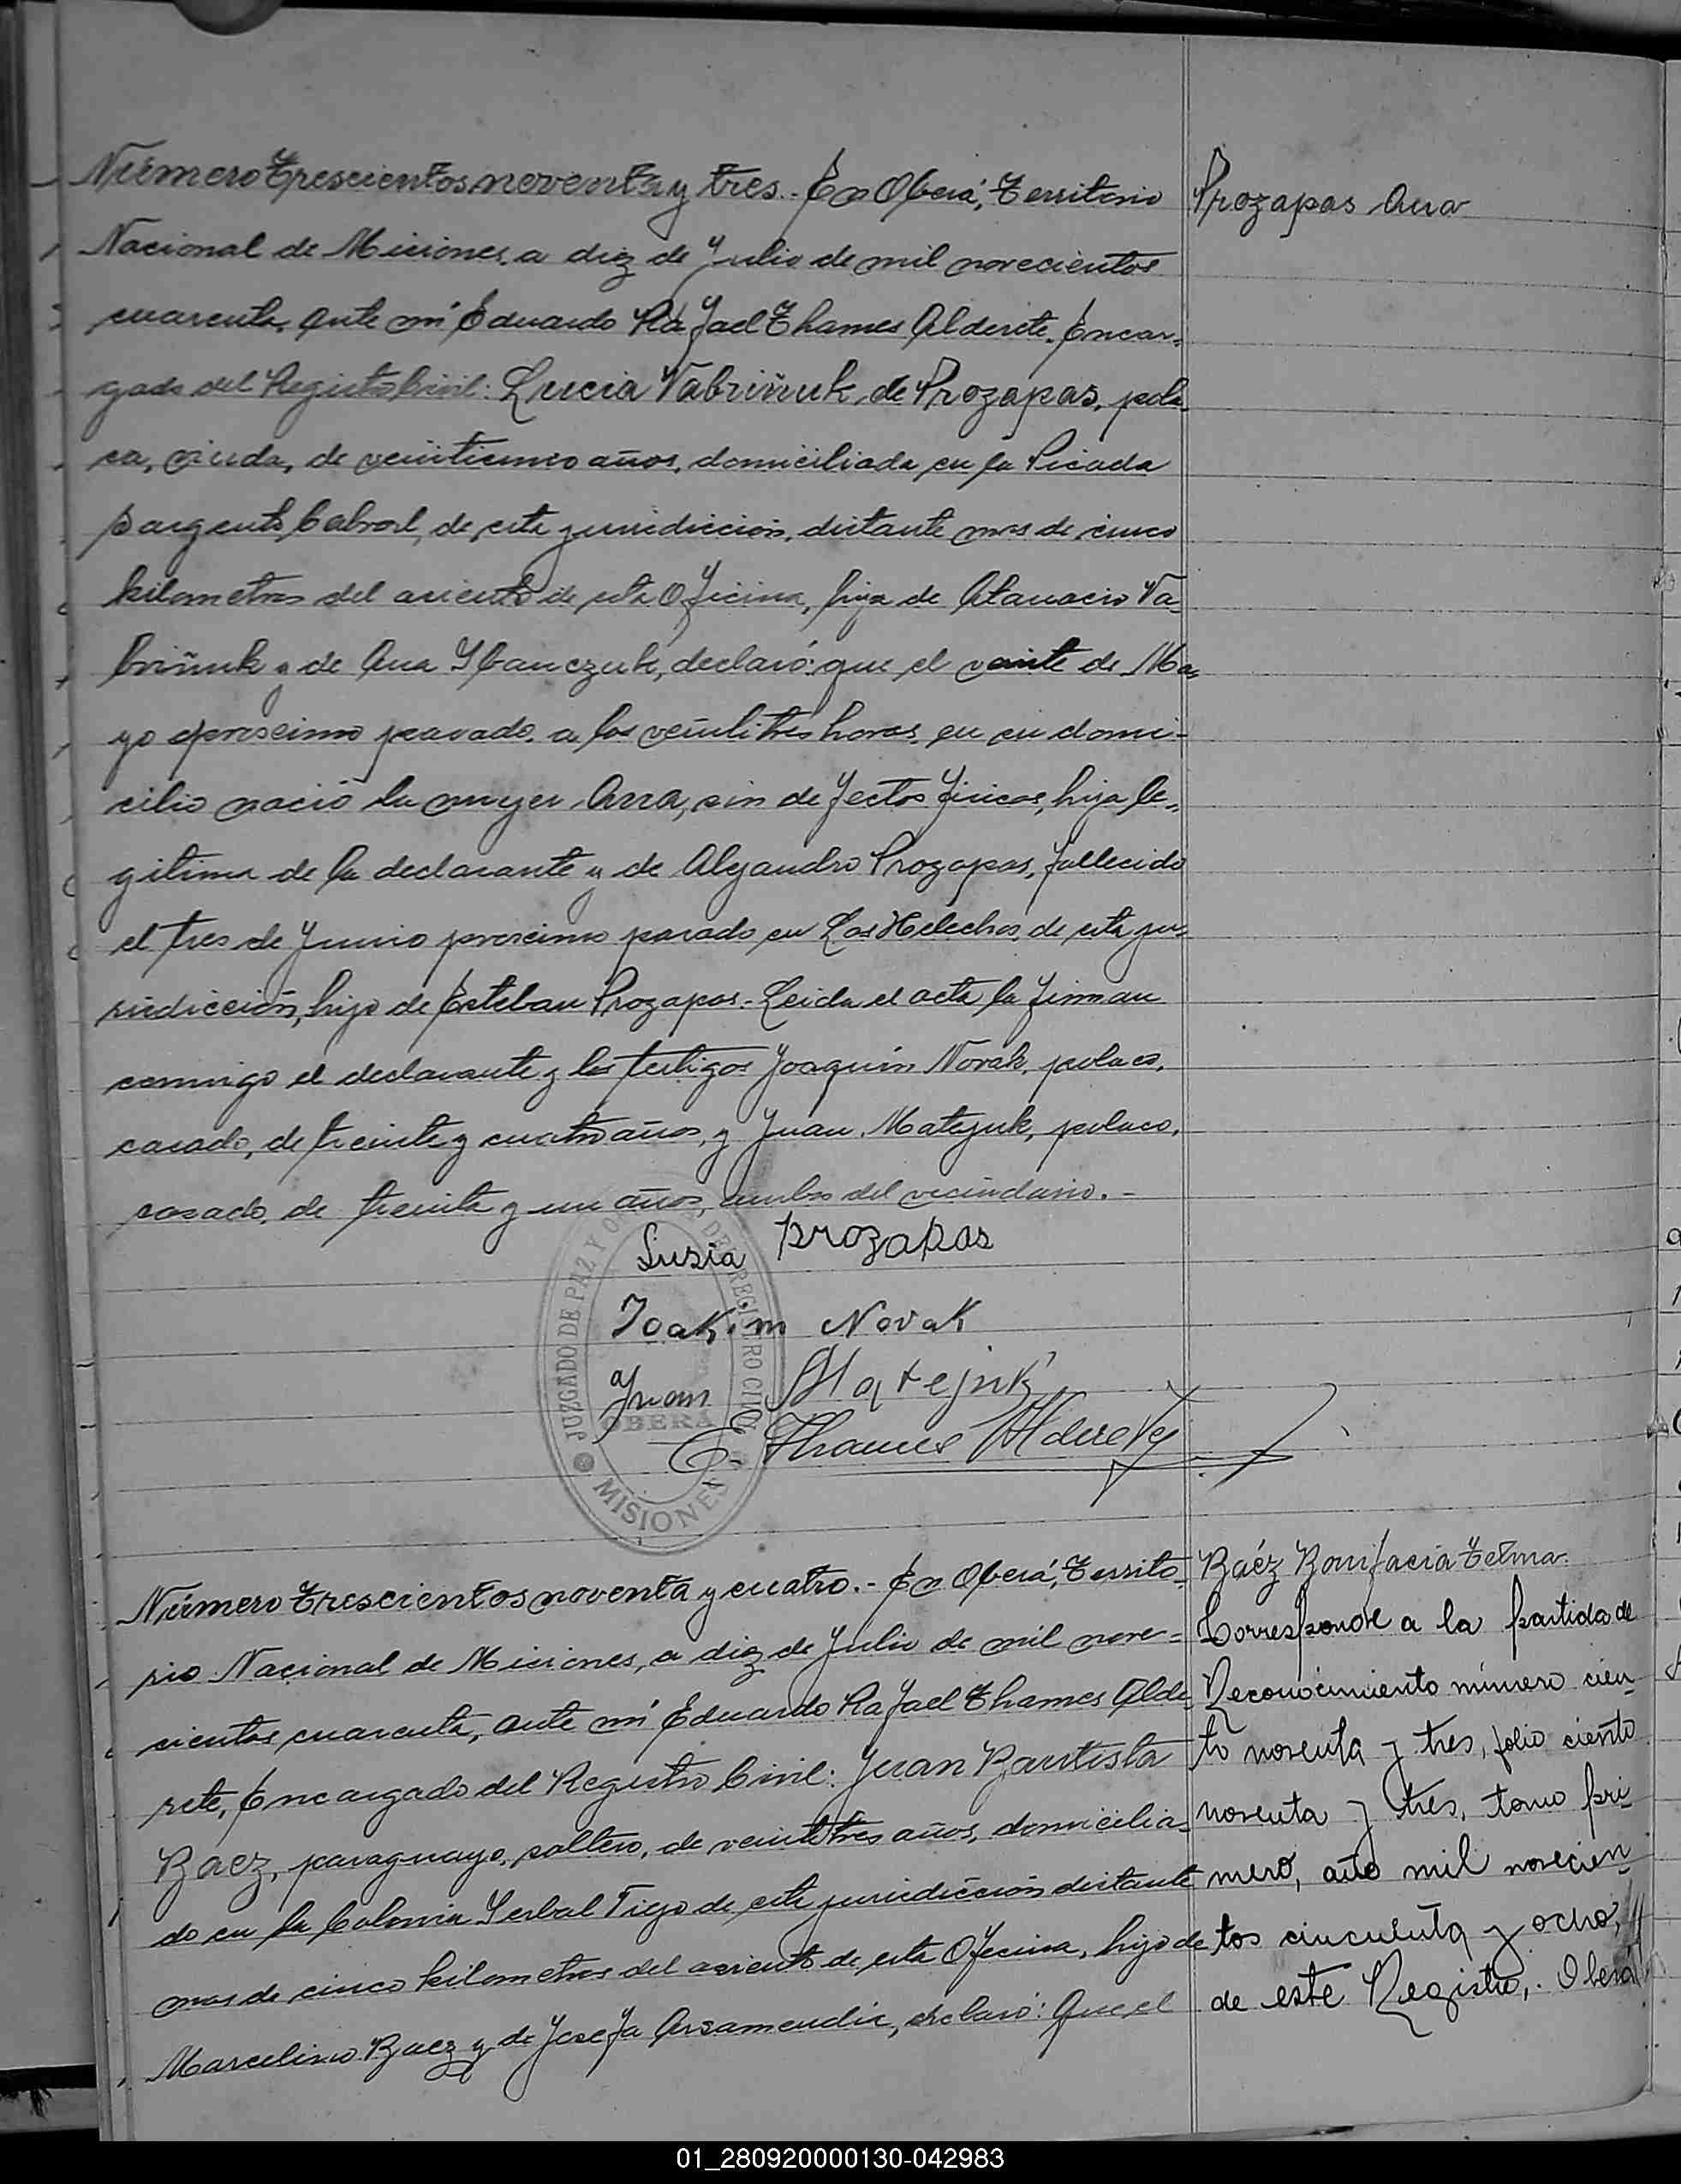 Número Trescientos noventa y tres.- En Oberá, Territorio
Nacional de Misiones, a diez de Julio de mil novecientos
cuarenta, ante mí Eduardo Rafael Thames Alderete, Encar-
gado del Registro Civil: Lucia Vabriñuk de Prozapas, pola-
ca, viuda, de veinticinco años, domiciliada en la Picada
Sargento Cabral, de esta jurisdicción, distante mas de cinco
kilometros del asiento de esta Oficina, hija de Atanacio Va-
briñuk y de Ana Ibanczuk, declaró: que el veinte de Ma-
yo proscimo pasado, a las veintitres horas, en su domi-
cilio nació la mujer Ana, sin defectos físicos, hija le-
gitima de la declarante y de Alejandro Prozapas, fallecido
el tres de Junio proscimo pasado en Los Helechos, de esta ju-
risdicción, hijo de Esteban Prozapas.- Leida el acta la firman
conmigo el declarante y los testigos Joaquín Novak, polaco,
casado, de treinta y cuatro años, y Juan Matejuk, polaco,
casado, de treinta y un años, ambos del vecindario.-
Prozapas Ana
Luzia Prozapas
Joakim Novak
Juan Matejuk
E. Thames Alderete
JUZGADO DE PAZ Y DEL REGISTRO CIVIL
OBERÁ
MISIONES
Número Trescientos noventa y cuatro.- En Oberá, Territo-
rio Nacional de Misiones, a diez de Julio de mil nove-
cientos cuarenta, ante mí Eduardo Rafael Thames Alde-
rete, Encargado del Registro Civil: Juan Bautista
Baez, paraguayo, soltero, de veintitres años, domicilia-
do en la Colonia Yerbal Viejo de esta jurisdicción distante
mas de cinco kilometros del asiento de esta Oficina, hijo de
Marcelino Baez y de Josefa Arsamendia, declaró: Que el
Baéz Bonifacia Telma.
Corresponde a la partida de
Reconocimiento número cien-
to noventa y tres, folio ciento
noventa y tres, tomo pri-
mero, año mil novecien-
tos cincuenta y ocho,
de este Registro,. Oberá
01_280920000130-042983